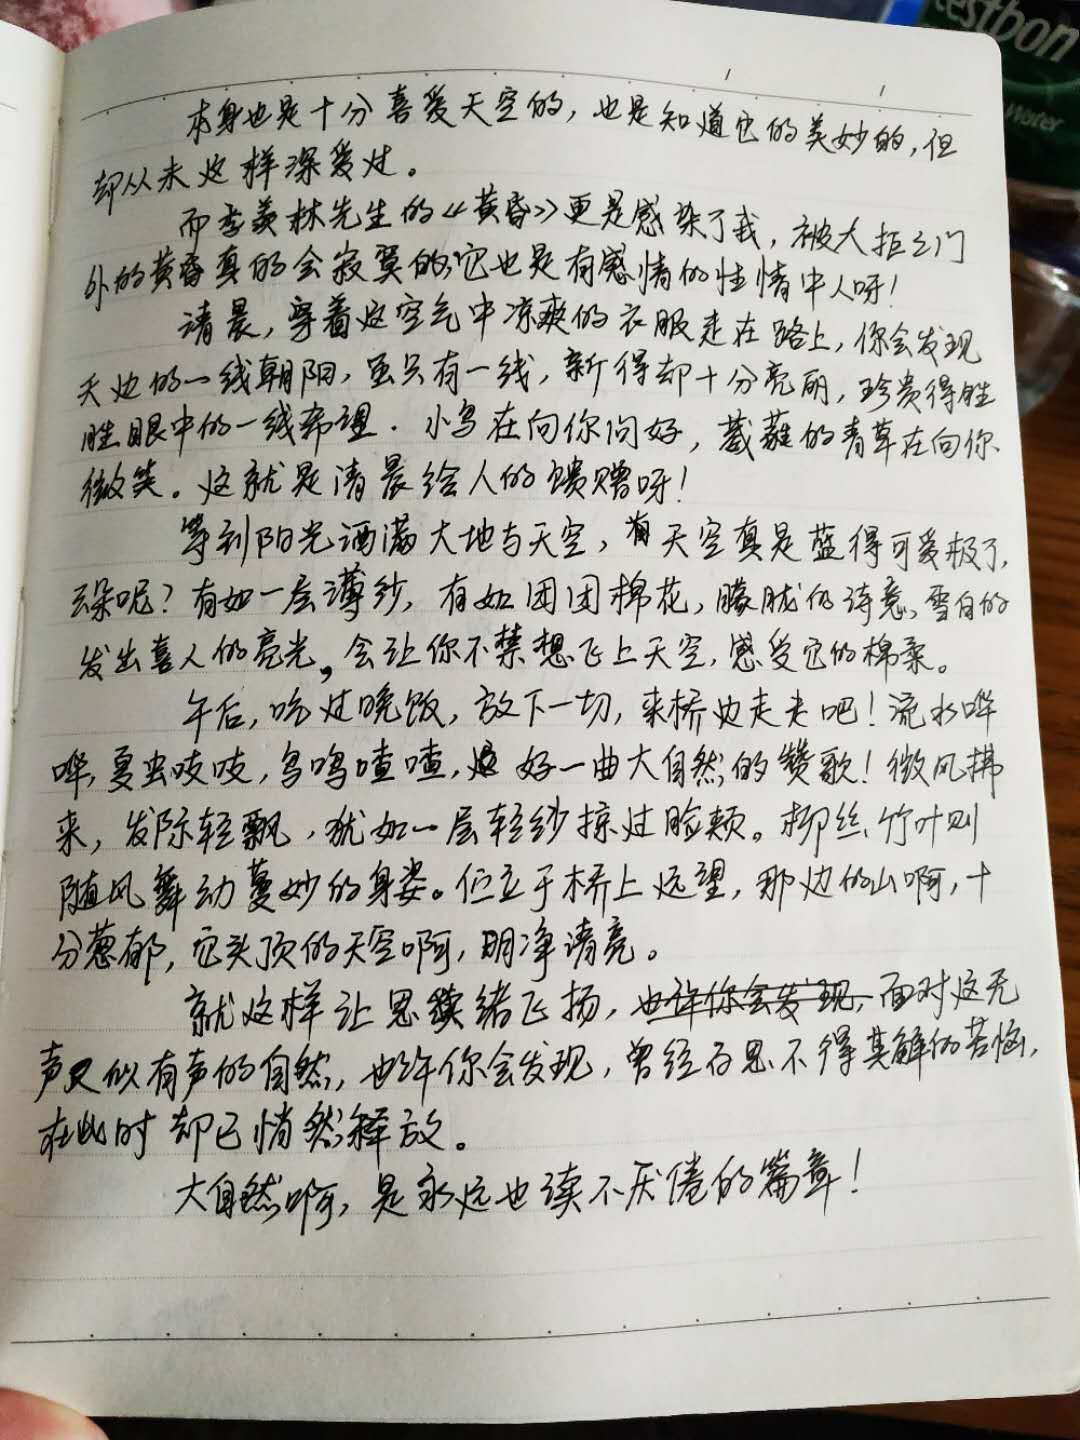 estbon
Water
本身也是十分喜爱天空的，也是知道它的美妙的，但
却从未这样深爱过。
而季羡林先生的《黄昏》更是感染了我，被大拒之门
外的黄昏真的会寂寞的，它也是有感情的性情中人呀！
清晨，穿着这空气中凉爽的衣服走在路上，你会发现
天边的一线朝阳，虽只有一线，新得却十分亮丽，珍贵得胜
胜眼中的一线希望．小鸟在向你问好，葳蕤的青草在向你
微笑。这就是清晨给人的馈赠呀！
等到阳光洒满大地与天空，天空真是蓝得可爱极了，
云朵呢？有如一层薄纱，有如团团棉花，朦胧的诗意，雪白的
发出喜人的亮光，会让你不禁想飞上天空，感受它的棉柔。
午后，吃过晚饭，放下一切，来桥边走走吧！流水哗
哗，夏虫吱吱，鸟鸣喳喳，好一曲大自然的赞歌！微风拂
来，发际轻飘，犹如一层轻纱掠过脸颊。柳丝竹叶则
随风舞动蔓妙的身姿。伫立于桥上远望，那边的山啊，十
分葱郁，它头顶的天空啊，明净清亮。
就这样让思绪飞扬，也许你会发现，面对这无
声又似有声的自然，也许你会发现，曾经百思不得其解的苦恼，
在此时却已悄然释放。
大自然啊，是永远也读不厌倦的篇章！